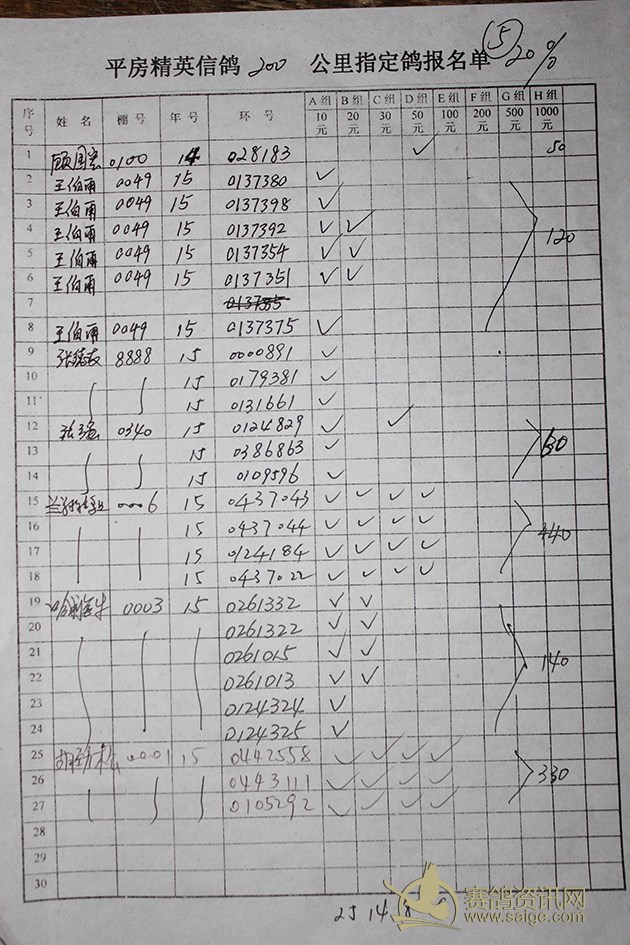 ⑤ 20%
平房精英信鸽 200 公里指定鸽报名单
序号 姓名 棚号 年号 环号 A组10元 B组20元 C组30元 D组50元 E组100元 F组200元 G组500元 H组1000元
1 0100 14 028183 ✓ 50
2 王伯雨 0049 15 0137380 ✓
3 王伯雨 0049 15 0137398 ✓
4 王伯雨 0049 15 0137392 ✓ ✓ 120
5 王伯雨 0049 15 0137354 ✓ ✓
6 王伯雨 0049 15 0137351 ✓ ✓
7
8 王伯雨 0049 15 0137375 ✓
9 8888 15 0000891 ✓
10 15 0179381 ✓
11 15 0131661 ✓
12 0340 15 0124829 ✓ ✓
13 15 0386863 ✓
14 15 0109596 ✓
15 0006 15 0437043 ✓ ✓ ✓ ✓
16 15 0437044 ✓ ✓ ✓ ✓ 440
17 15 0124184 ✓ ✓ ✓ ✓
18 15 0437022 ✓ ✓ ✓ ✓
19 0003 15 0261332 ✓ ✓
20 0261322 ✓ ✓
21 0261015 ✓ ✓ 140
22 0261013 ✓ ✓
23 0124324 ✓
24 0124325 ✓
25 0001 15 0442558 ✓ ✓ ✓ ✓
26 0443111 ✓ ✓ ✓ ✓ 330
27 0105292 ✓ ✓ ✓ ✓
28
29
30
25 14 8
赛鸽资讯网
www.saige.com